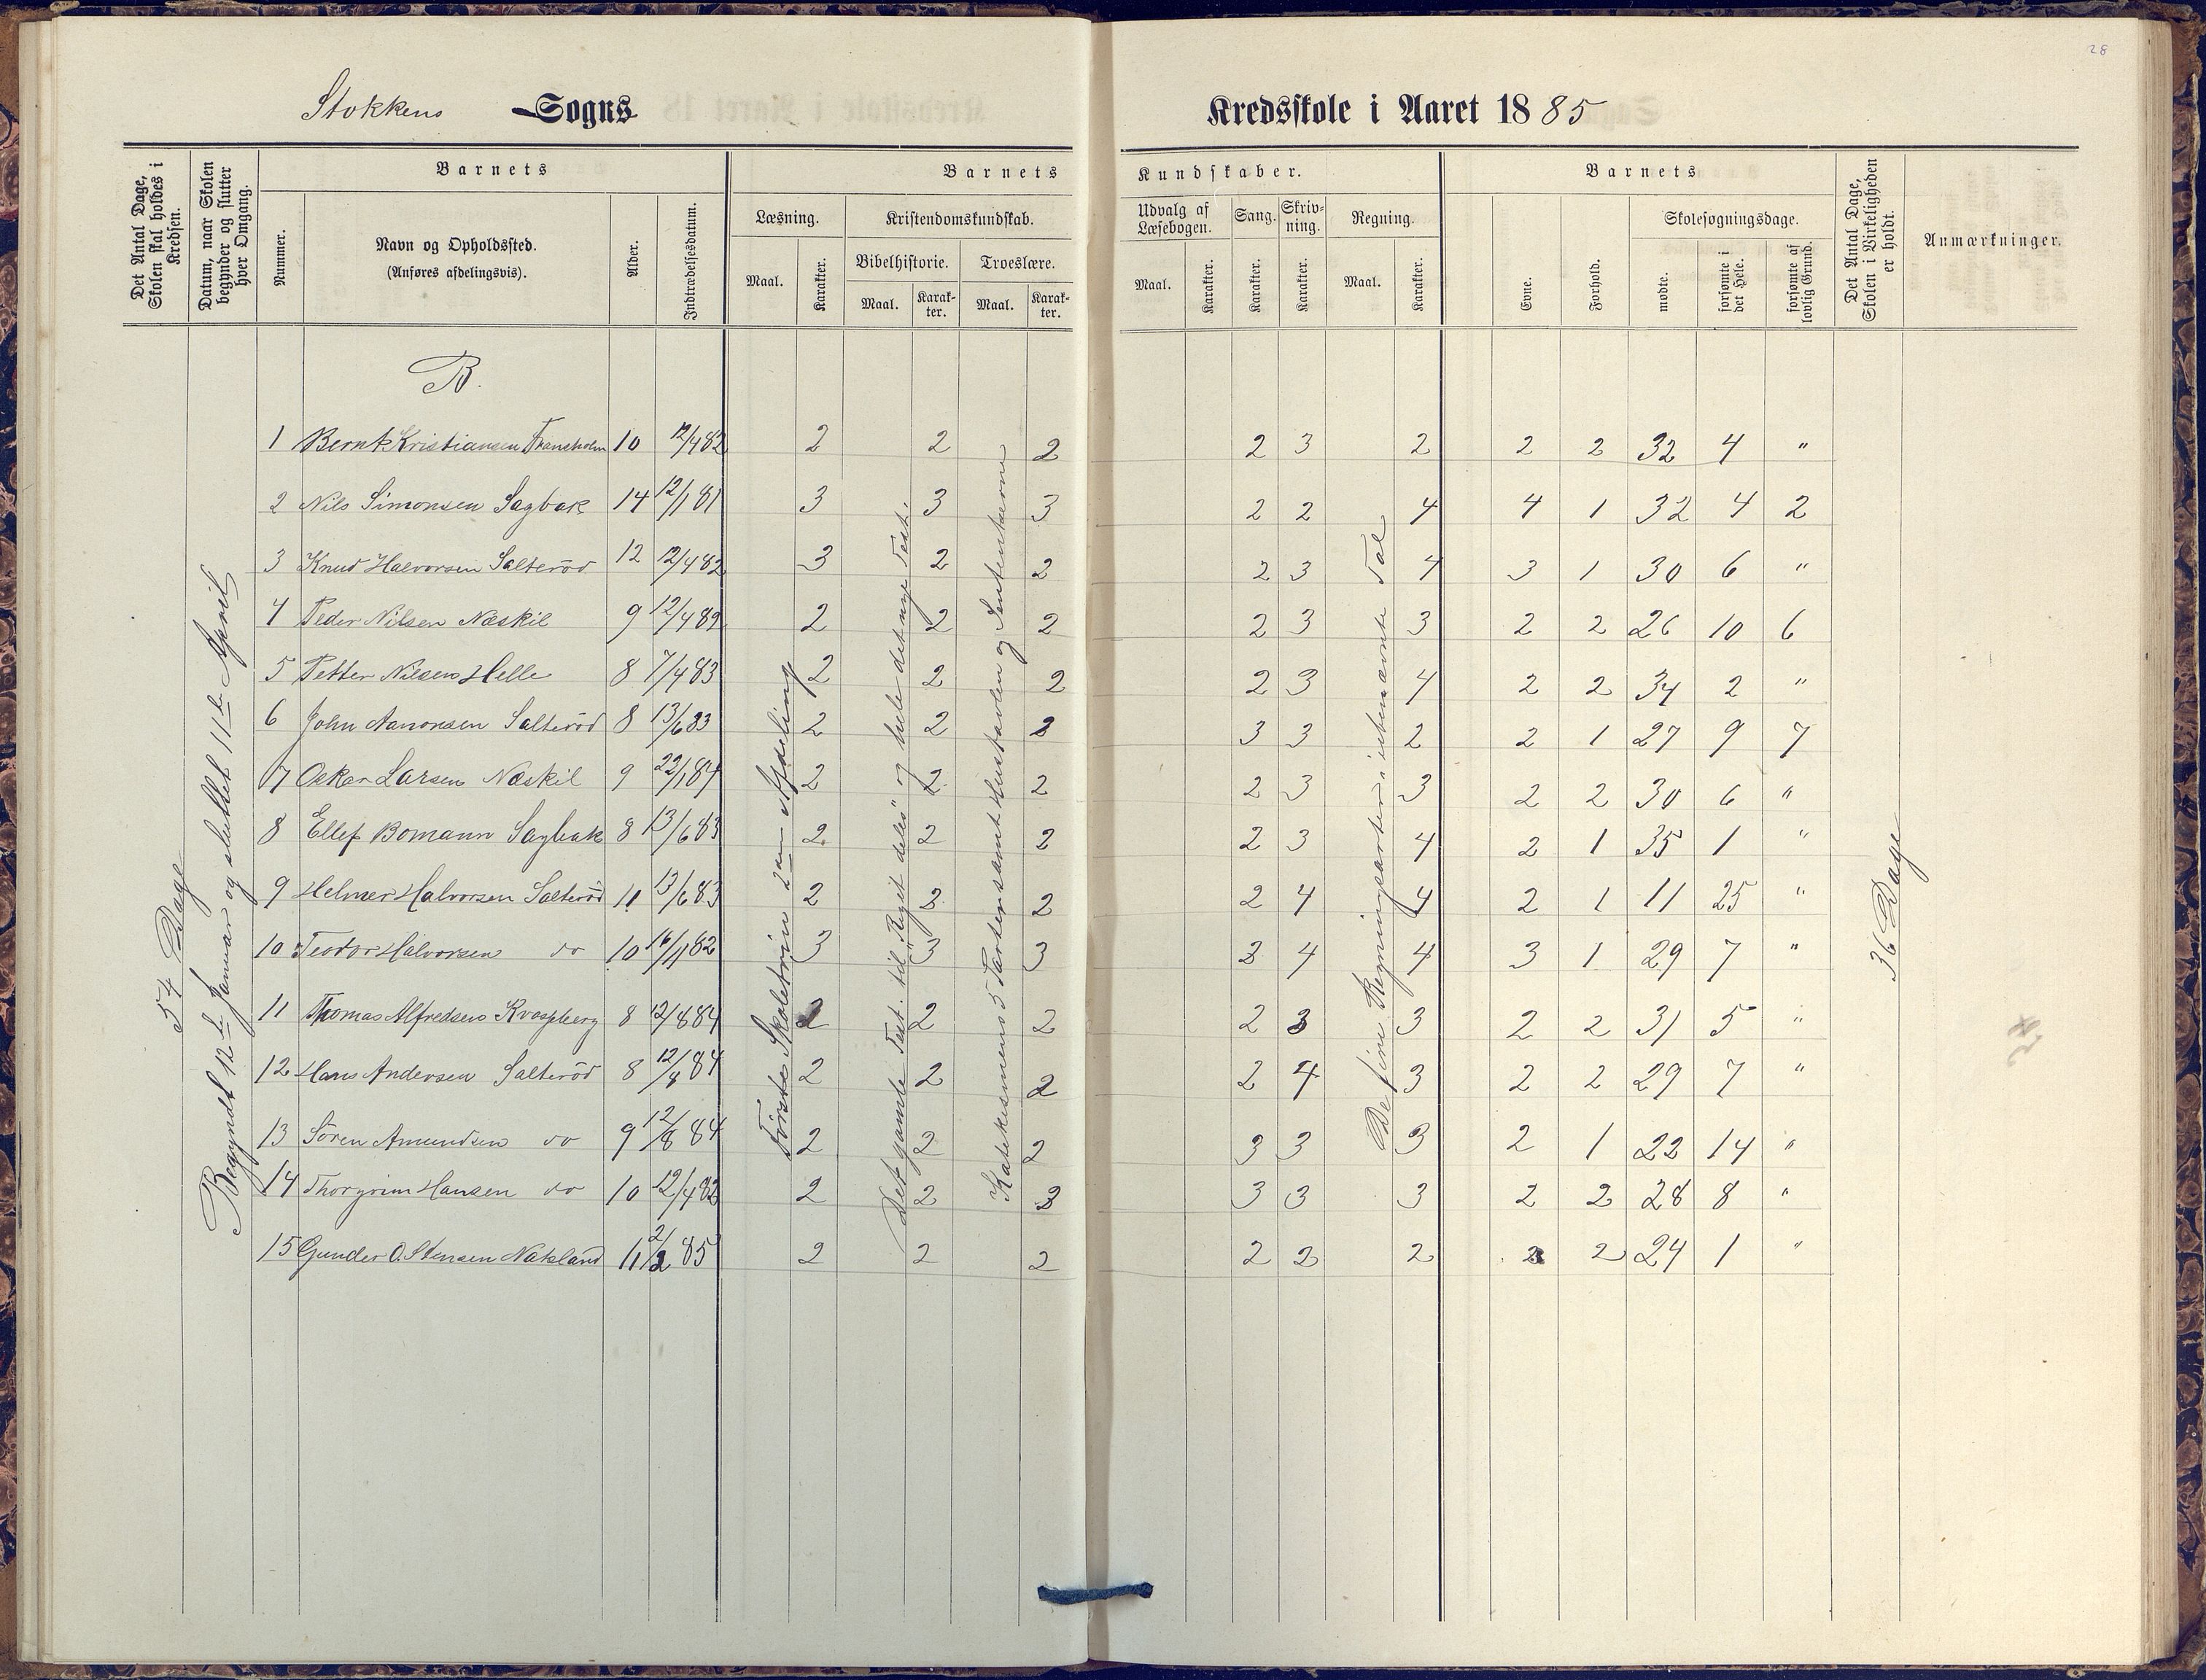 28
Stokkens Sogns Kredsskole i Aaret 1885
Det Antal Dage, Skolen skal holdes i Kredsen.
Datum, naar Skolen begynder og slutter hver Omgang.
Barnets
Nummer.
Navn og Opholdssted.
(Anføres afdelingsvis).
Alder.
Indtrædelsesdatum.
Barnets Kundskaber.
Læsning.
Maal.
Karakter.
Kristendomskundskab.
Bibelhistorie.
Maal.
Karak-
ter.
Troeslære.
Maal.
Karak-
ter.
Udvalg af
Læsebogen.
Maal.
Karakter.
Sang.
Karakter.
Skriv-
ning.
Karakter.
Regning.
Maal.
Karakter.
Barnets
Evne.
Forhold.
Skolesøgningsdage.
mødte.
forsømte i
det Hele.
forsømte af
lovlig Grund.
Det Antal Dage,
Skolen i Virkeligheden
er holdt.
Anmærkninger.
54 Dage
Begyndt 12te Januar og sluttet 11te April
B.
Første Skoletrin 2den Afdeling
Det gamle Test. til "Riget deles" og hele det nye Test.
Katekismens 5 Parter samt Hustavlen og Sentenserne
De fire Regningsarter i ubenævnte Tal
36 Dage
1 Bernt Kristiansen 10 12/4 82 2 2 2 2 3 2 2 2 32 4 "
2 Nils Simonsen Sagbak 14 12/1 81 3 3 3 2 2 4 4 1 32 4 2
3 Knud Halvorsen Salterød 12 12/4 82 3 2 2 2 3 4 3 1 30 6 "
4 Peder Nilsen Næskil 9 12/4 82 2 2 2 2 3 3 2 2 26 10 6
5 Petter Nilsen Helle 8 7/4 83 2 2 2 2 3 4 2 2 34 2 "
6 John Aanonsen Salterød 8 13/6 83 2 2 2 3 3 2 2 1 27 9 7
7 Osker Larsen Næskil 9 22/1 84 2 2 2 2 3 3 2 2 30 6 "
8 Ellef Bomann Sagbak 8 13/6 83 2 2 2 2 3 4 2 1 35 1 "
9 Helmer Halvorsen Salterød 11 13/6 83 2 2 2 2 4 4 2 1 11 25 "
10 Teodor Halvorsen do 10 16/1 82 3 3 3 3 4 4 3 1 29 7 "
11 Thomas Alfredsen 8 12/8 84 2 2 2 2 3 3 2 2 31 5 "
12 Hans Andersen Salterød 8 12/8 84 2 2 2 2 4 3 2 2 29 7 "
13 Søren Amundsen do 9 12/8 84 2 2 2 3 3 3 2 1 22 14 "
14 Thorgrim Hansen do 10 12/4 82 2 2 2 3 3 3 2 2 28 8 "
15 Gunder O. Stensen Nakland 11 2/2 85 2 2 2 2 2 2 2 2 24 1 "